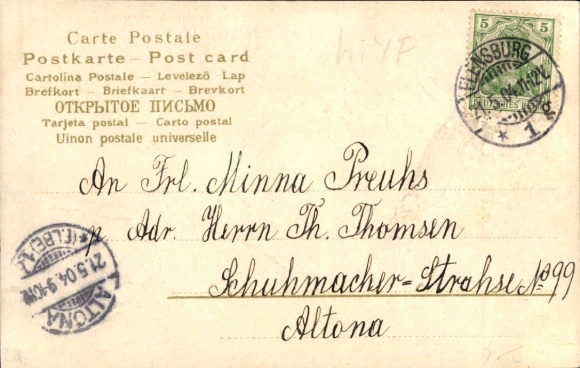 Carte Postale
Postkarte – Post card
Cartolina Postale – Levelező Lap
Brefkort – Briefkaart – Brevkort
ОТКРЫТОЕ ПИСЬМО
Tarjeta postal – Carto postal
Uinon postale universelle
hiYF
5 5
FLENSBURG
04.11-12V.
* 1 g
An Frl. Minna Preuhs
p. Adr. Herrn Th. Thomsen
Schuhmacher-Strahse No 99
Altona
* (ELBE) 1
21.5.04.9-10V.
ALTONA